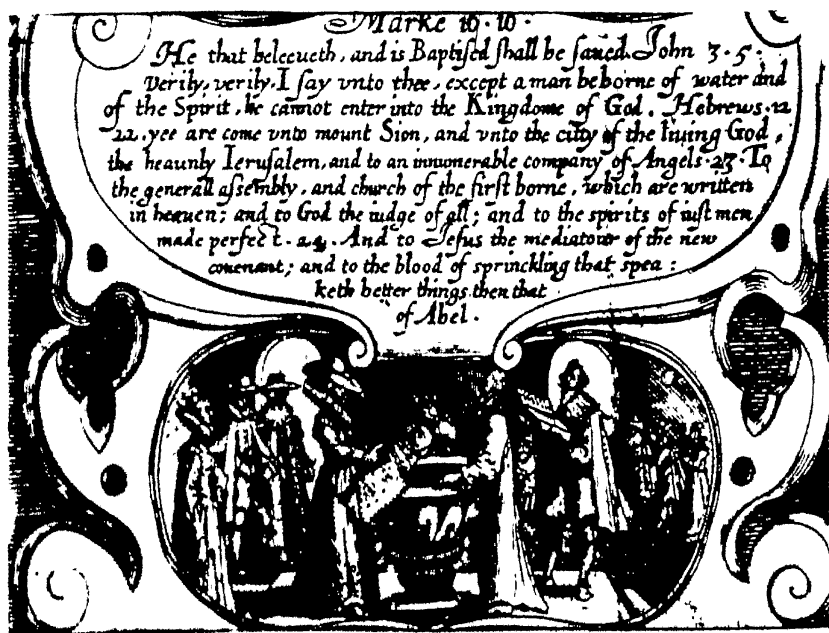 Marke 16·16·
He that beleeueth, and is Baptised shall be saued. John 3·5·
Verily, verily, I say vnto thee, except a man be borne of water and
of the Spirit, he cannot enter into the Kingdome of God. Hebrews·12
22·yee are come vnto mount Sion, and vnto the citty of the liuing God,
the heaunly Ierusalem, and to an innumerable company of Angels·23·To
the generall assembly, and church of the first borne, which are written
in heauen; and to God the iudge of all; and to the spirits of iust men
made perfect·24·And to Jesus the mediatour of the new
couenant; and to the blood of sprinckling that spea:
keth better things then that
of Abel·